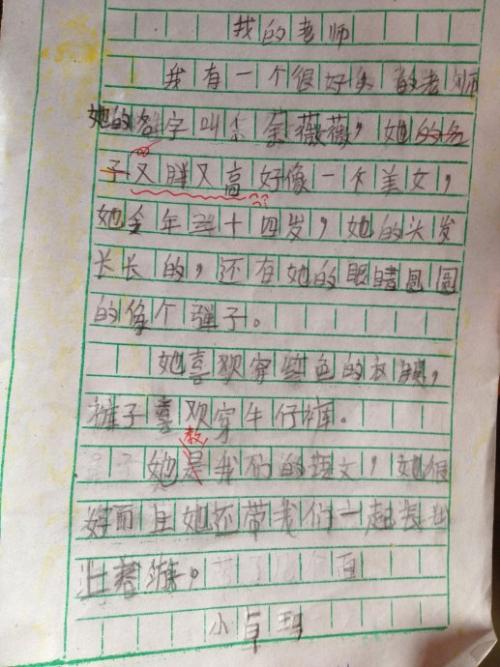 我的老师
我有一个很好的老师
她的名字叫余薇薇,她的名
子又胖又高好像一个美女,
她全年三十四岁,她的头发
长长的,还有她的眼睛圆圆
的像个弹子。
她喜欢穿红色的衣服,
裤子喜欢穿牛仔裤。
教
她是我们的语文,她很
好而且她还带我们一起去
小卓玛